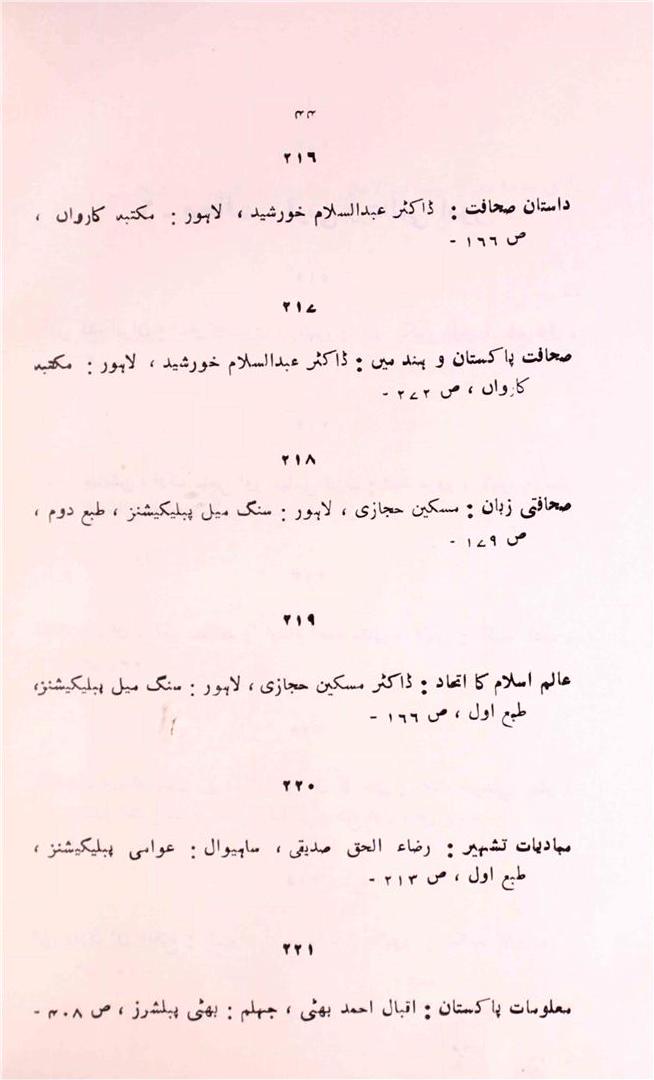 ۴۴
۲۱۶
داستان صحافت : ڈاکٹر عبدالسلام خورشید ، لاہور : مکتبہ کارواں ،
ص ۱۶۶ -
۲۱۷
صحافت پاکستان و ہند میں : ڈاکٹر عبدالسلام خورشید ، لاہور : مکتبہ
کارواں ، ص ۲۷۲ -
۲۱۸
صحافتی زبان : مسکین حجازی ، لاہور : سنگ میل پبلیکیشنز ، طبع دوم ،
ص ۱۷۹ -
۲۱۹
عالم اسلام کا اتحاد : ڈاکٹر مسکین حجازی ، لاہور : سنگ میل پبلیکیشنز،
طبع اول ، ص ۱۶۶ -
۲۲۰
مبادیات تشہیر : رضاء الحق صدیقی ، ساہیوال : عوامی پبلیکیشنز ،
طبع اول ، ص ۲۱۳ -
۲۲۱
معلومات پاکستان : اقبال احمد بھٹی ، جہلم : بھٹی پبلشرز ، ص ۴۰۸ -